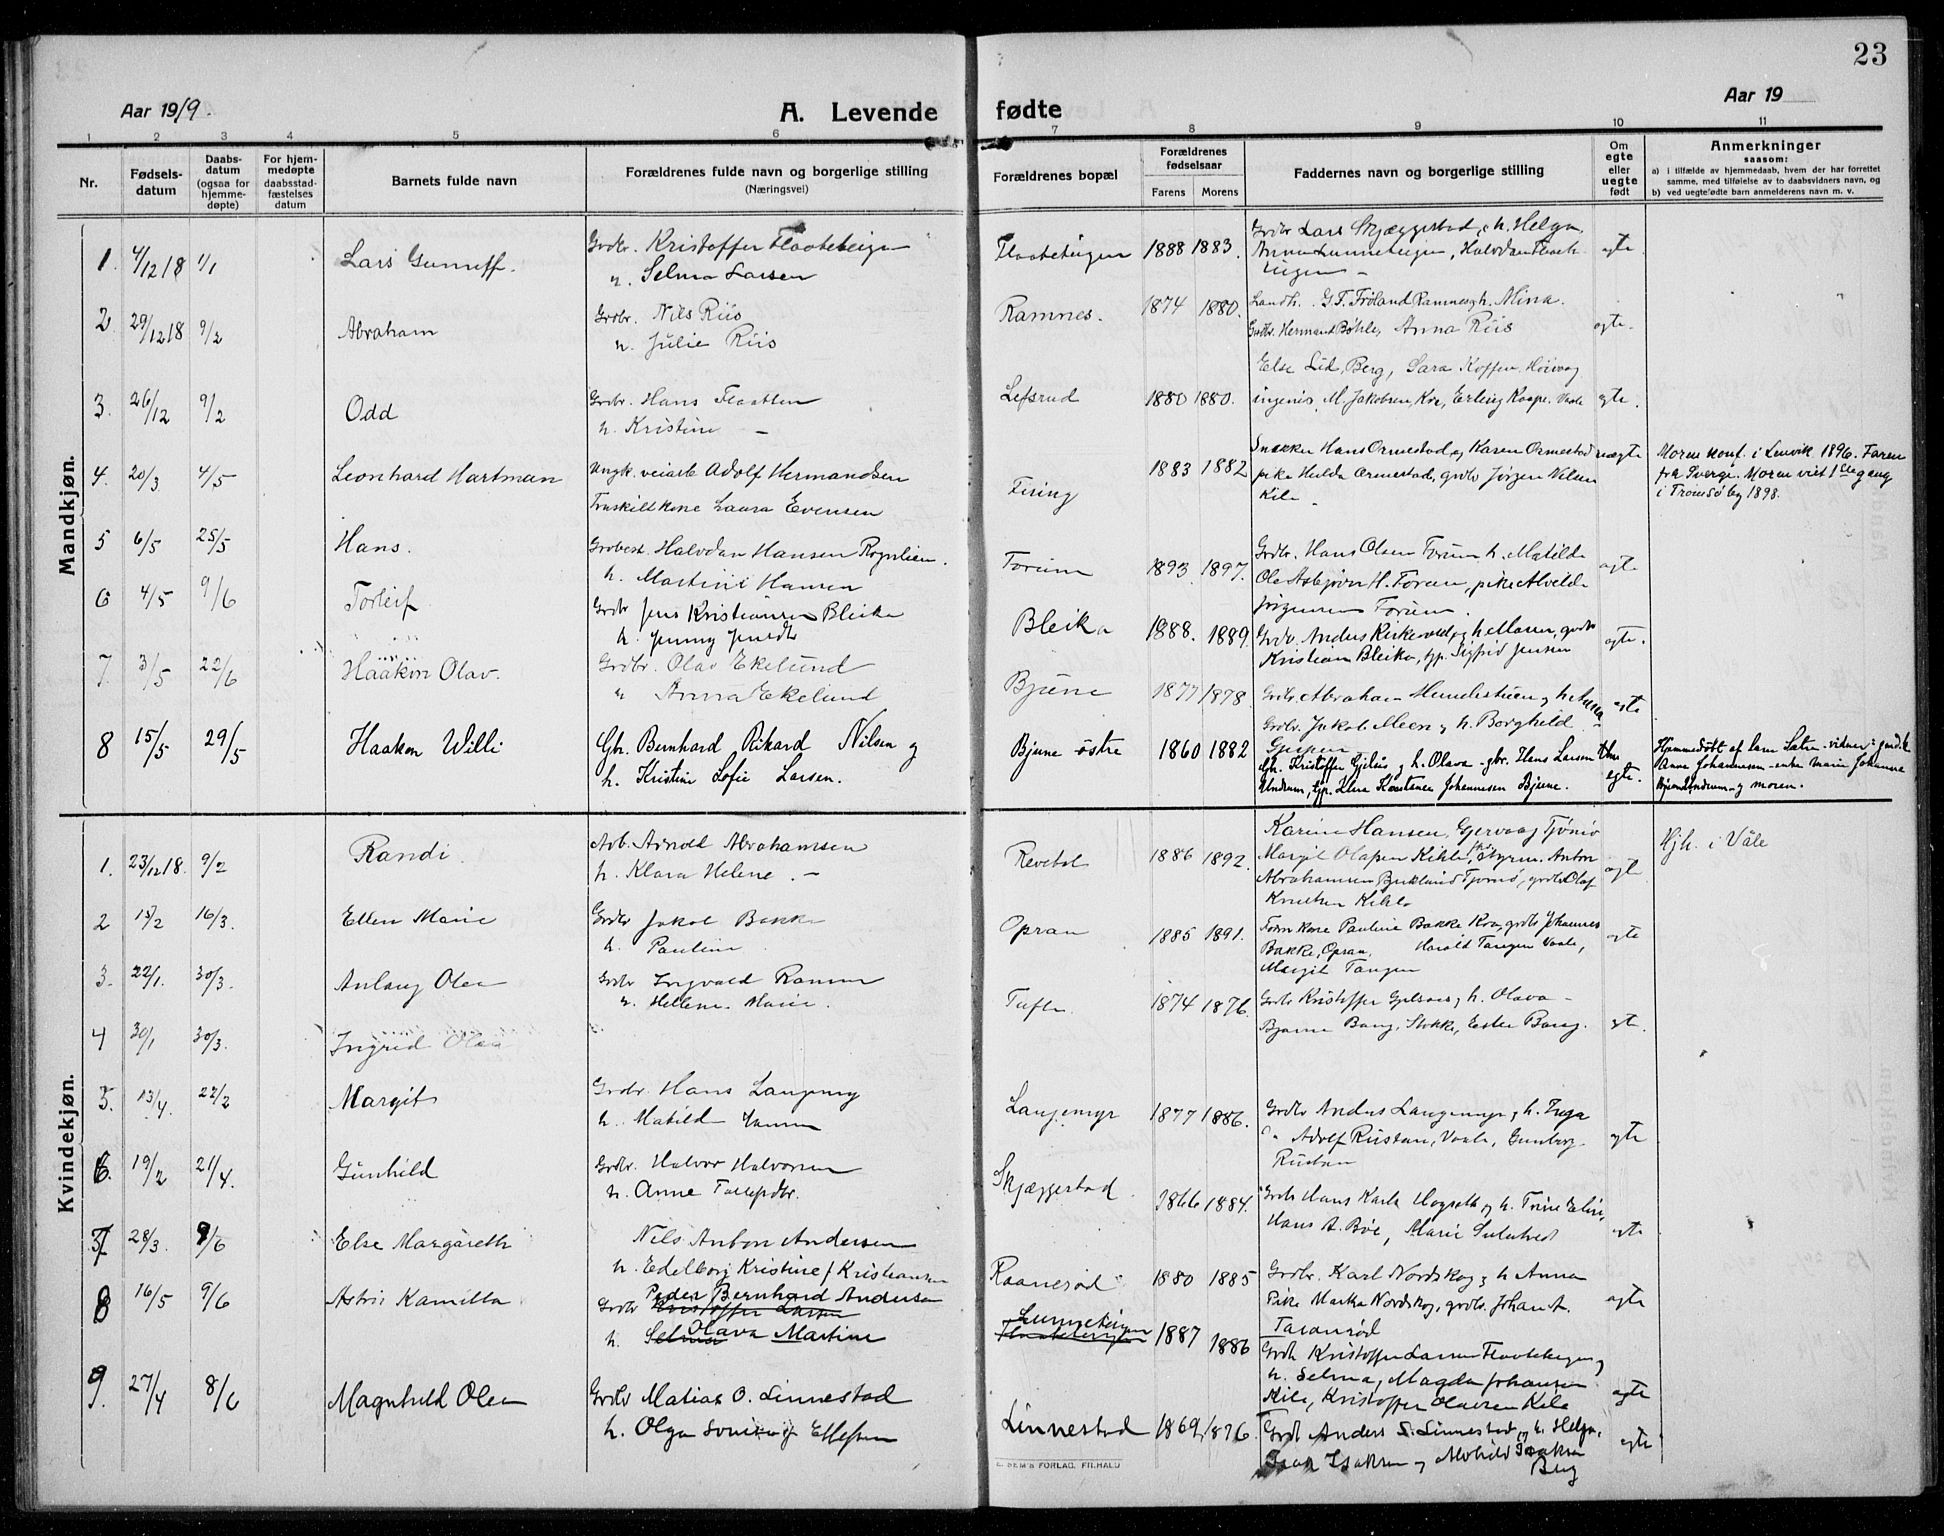 23
Aar 1919.
A. Levende fødte
Aar 19
1 2 3 4 5 6 7 8 9 10 11
Nr.
Fødsels-
datum
Daabs-
datum
(ogsaa for
hjemme-
døpte)
For hjem-
medøpte
daabsstad-
fæstelses
datum
Barnets fulde navn
Forældrenes fulde navn og borgerlige stilling
(Næringsvei)
Forældrenes bopæl
Forældrenes
fødselsaar
Farens Morens
Faddernes navn og borgerlige stilling
Om
egte
eller
uegte
født
Anmerkninger
saasom:
a) i tilfælde av hjemmedaab, hvem der har forrettet
samme, med tilføielse av to daabsvidners navn, og
b) ved uegtefødte barn anmelderens navn m. v.
Mandkjøn.
1. 4/12 18 1/1 Lars Gunleff. Grdbr. Kristoffer Flaateteigen
h. Selma Larsen
Flaateteigen 1888 1883. Grdbr Lars Skjæggestad, h. Helga,
Anna Lunneteigen, Halvdan Flaate-
teigen - egte
2. 29/12 18 9/2 Abraham Grdbr. Nils Riis
h. Julie Riis
Ramnes. 1874 1880. Landh. G. F. Frøland Ramnes, h. Mina.
Grdbr. Herman Bøhle, Anna Riis egte.
3. 26/12 9/2 Odd Grdbr. Hans Flaatten
h. Kristine -
Lefsrud 1880 1880. Else Lid, Berg, Sara Koffen,
M. Jakobsen, Erling Kaape. Vaale egte.
4. 20/3 4/5 Leonhard Hartman Ungk. veiarb Adolf Hermandsen
Fraskilt kone Laura Evensen
Firing 1883 1882 Snekker Hans Ormestad, og Karen Ormestad
pike Hulda Ormestad, grdbr Jørgen Nilsen
Kile - uegte
Moren konf. i Lenvik 1896. Faren
fra Sverge. Moren viet 1ste gang
i Tromsø by 1898.
5 6/5 25/5 Hans. Grdbest. Halvdan Hansen Rognlien.
h. Martine Hansen
Forum 1893. 1897. Grdbr. Hans Olsen Forum h. Matilde
Ole Asbjørn H. Forum, pike Alvilde
Jørgensen Forum. egte
6 4/5 9/6 Torleif Grdbr Jens Kristiansen Bleika
h. Jenny Jensdtr
Bleika 1888. 1889. Grdbr. Anders Kirkevold, h. Maren, grdbr
Kristian Bleika, gp. Sigfrid Jensen egte.
7. 3/5 22/6 Haakon Olav. Grdbr. Olav Ekelund
" Anna Ekelund
Bjune 1877 1878 Grdbr. Abraham h. Anna
Grdbr. Jakob Meen og h. Borghild egte
8 15/5 29/5 Haakon Willi Gbr. Bernhard Rikard Nilsen og
h. Kristine Sofie Larsen.
Bjune østre 1860 1882 Gbr. Kristoffer Gjelsås og h. Olava - gbr. Hans Larsen
Undrum, Konstance Johannesen Bjune. egte.
Hjemmedøbt af Lars Satre - vidner
Anna Johannesen - enke Marie Johanna
og moren.
Kvindekjøn.
1. 23/12 18. 9/2 Randi. Arb. Arnold Abrahamsen
h. Klara Helene. -
Revetal 1886 1892. Karine Hansen, Gjervaag Tjømø
Margit Olafsen Kihle, styrm. Anton
Abrahamsen Tjømø, grdbr Olaf
Knutsen Kihle egte
Hjh. i Våle
2 15/2 16/3. Ellen Marie Grdbr Jakob Bakke
h. Pauline
Opran 1885 1891. kone Pauline Bakke grdbr Johannes
Bakke, Opran, Harald Tangen Vaale,
Margit Tangen egte
3. 22/1. 30/3. Anlaug Olea Grdbr Ingvald
h. Hellene Marie.
Tufte 1874 1876. Grdbr Kristoffer Gjelsaas, h. Olava -
Bjarne Bang, Stokke, Ester Bang. egte.
4 30/1 30/3. Ingrid Olea "
5. 13/4. 22/2 Margit Grdbr. Hans Langemyr
h. Matilde
Langemyr 1877 1886. Grdbr Anders Langemyr, h. Inga
Adolf Rustan, Vaale, Gunborg
Rustan egte
6. 19/2 21/4. Gunhild Grdbr. Halvor Halvorsen
h. Anne
Skjæggestad 1866 1884. Grdbr Hans Karl h. Trine
Hans A. Bøe, Marie egte
7 28/3. 9/6 Else Margareth Nils Anton Andersen
h. Edelborg Kristine f Kristiansen
Raanerød 1880 1885 Grdbr. Karl Nordskog, h Anna
Pike Marka Nordskog, grdbr. Johan A.
Taranrød egte
8 16/5 9/6 Astri Kamilla Peder Bernhard Andersen
Grdbr Kristoffer Larsen
h. Selma Olava Martine
Lunneteigen
Flaateteigen 1887 1886 Grdbr Kristoffer Larsen Flaateteigen,
h. Selma, Magda Johansen
Kile, Kristoffer Olavsen Kile egte
9. 27/4 8/6 Magnhild Olea Grdbr Matias O. Linnestad
h. Olga
Linnestad 1869 1876. Grdbr Anders L. Linnestad, h. Helga,
Isak Isaksen og Isaksen
Berg egte
E. SEM'S FORLAG, FR.HALD